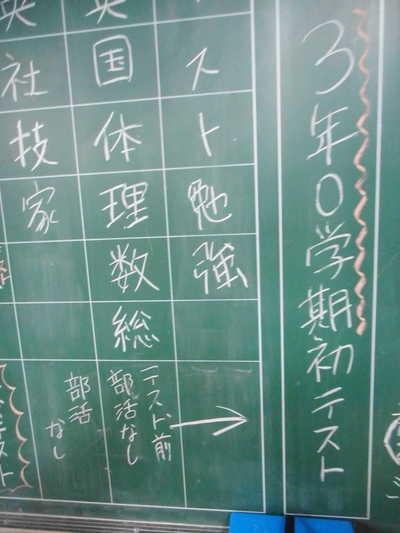 3年0学期初テスト
スト勉強
英国体理数総
テスト前
部活なし
英社技家
部活なし